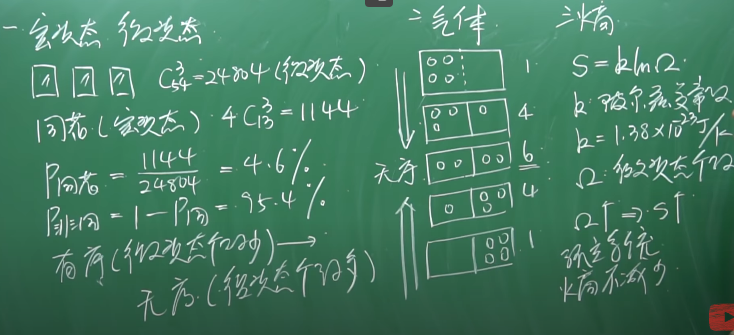 一 宏观态 微观态
C₅₄³=24804(微观态)
同花(宏观态) 4C₁₃³=1144
P同花 = 1144/24804 = 4.6%
P非同 = 1-P同 = 95.4%
有序(微观态个数少)→
无序(微观态个数多)
二 气体
1
4
无序 6
4
1
三 熵
S=klnΩ
k:玻尔兹曼常数
k=1.38×10⁻²³J/K
Ω:微观态个数
Ω↑⇒S↑
孤立系统
熵不减少